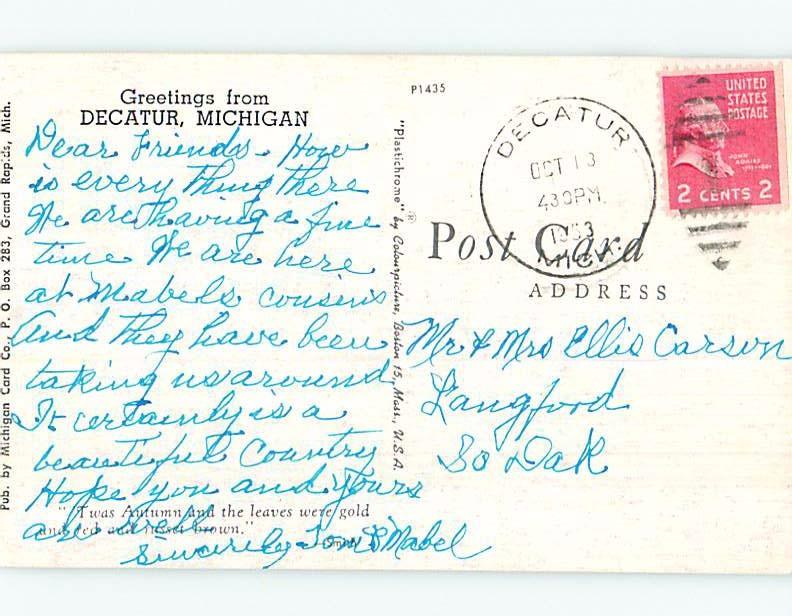 Greetings from
DECATUR, MICHIGAN
Dear Friends. How
is every thing there
We are having a fine
time We are here
at Mabels cousins
And they have been
taking us around
It certainly is a
beautiful Country
Hope you and yours
are well
Sincerely Tom & Mabel
"'Twas Autumn and the leaves were gold
and red and russet brown."
Pub. by Michigan Card Co., P. O. Box 283, Grand Rapids, Mich.
"Plastichrome"® by Colourpicture, Boston 15, Mass., U.S.A.
P1435
DECATUR
OCT 13
430PM.
1953
MICH.
UNITED
STATES
POSTAGE
JOHN
ADAMS
2 CENTS 2
Post Card
ADDRESS
Mr & Mrs Ellis Carson
Langford
So Dak